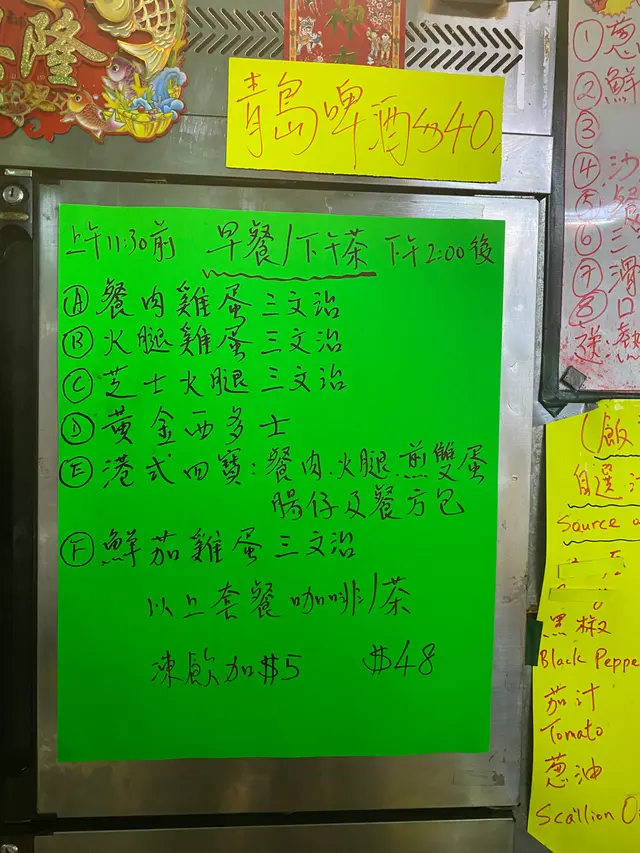 隆
神
青島啤酒每40
上午11:30前 早餐/下午茶 下午2:00後
Ⓐ 餐肉雞蛋三文治
Ⓑ 火腿雞蛋三文治
Ⓒ 芝士火腿三文治
Ⓓ 黃金西多士
Ⓔ 港式四寶:餐肉.火腿.煎雙蛋
腸仔及餐方包
Ⓕ 鮮茄雞蛋三文治
以上套餐咖啡/茶
凍飲加$5 $48
① 蔥
② 鮮
③
④ 沙
⑤
⑥ 三
⑦ 滑
⑧ 口
送:熱
(飯
自選汁
Saurce
黑椒
Black Peppe
茄汁
Tomato
蔥油
Scallion O